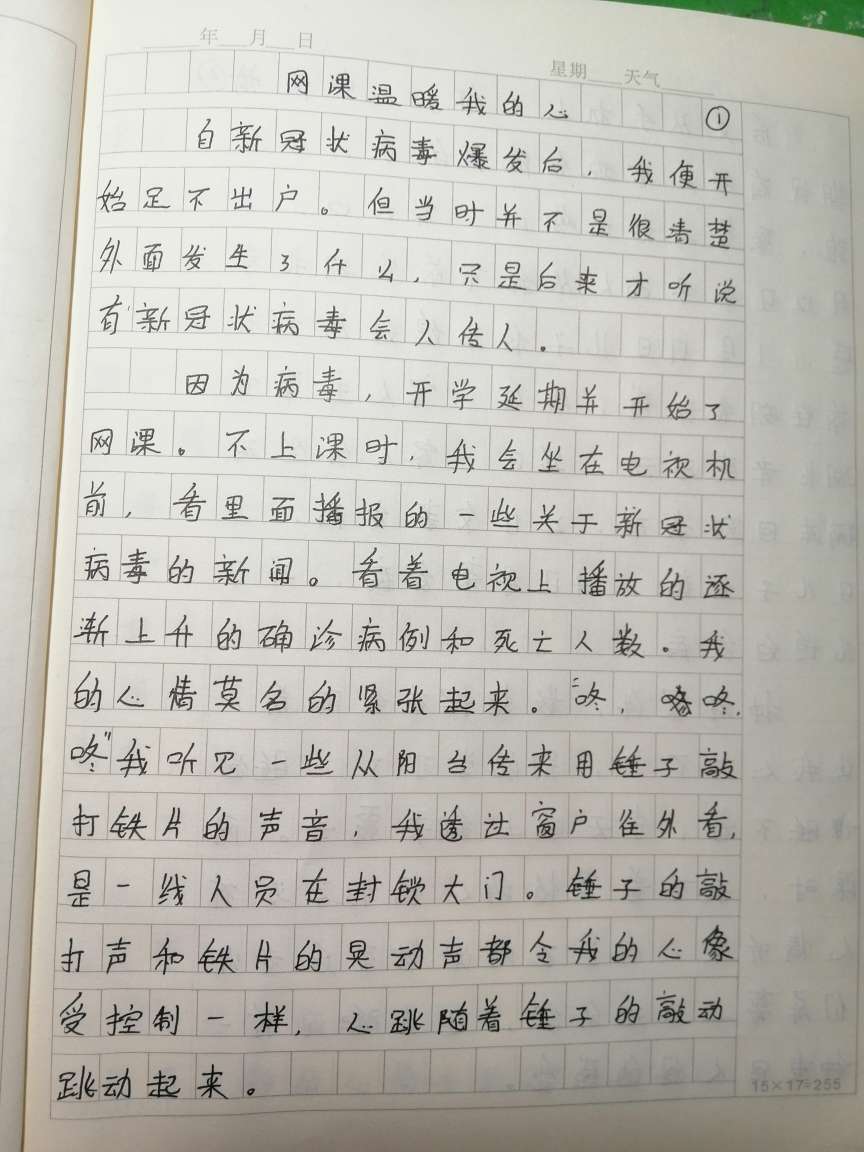 年 月 日
星期 天气
网课温暖我的心 ①
自新冠状病毒爆发后，我便开
始足不出户。但当时并不是很清楚
外面发生了什么，只是后来才听说
有新冠状病毒会人传人。
因为病毒，开学延期并开始了
网课。不上课时，我会坐在电视机
前，看里面播报的一些关于新冠状
病毒的新闻。看着电视上播放的逐
渐上升的确诊病例和死亡人数。我
的心情莫名的紧张起来。“咚，咚咚，
咚”我听见一些从阳台传来用锤子敲
打铁片的声音，我透过窗户往外看，
是一线人员在封锁大门。锤子的敲
打声和铁片的晃动声都令我的心像
受控制一样，心跳随着锤子的敲动
跳动起来。
15×17=255